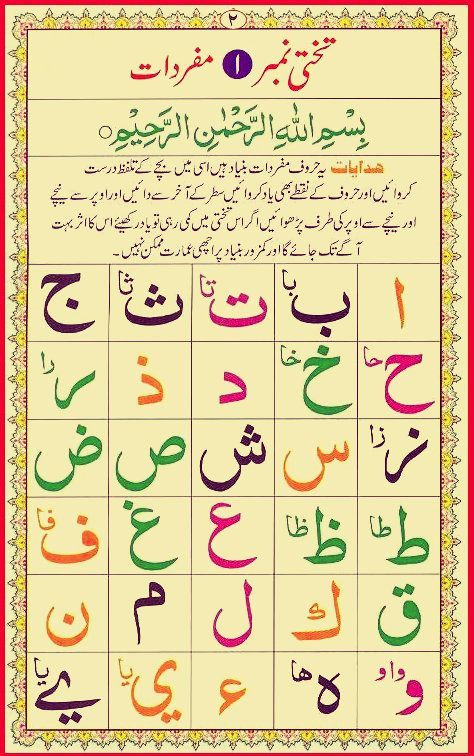 ٢
تختی نمبر ۱ مفردات
بِسْمِ اللهِ الرَّحْمٰنِ الرَّحِيْمِ ○
ھدایات یہ حروف مفردات بنیاد ہیں اسی میں بچے کے تلفظ درست
کروائیں اور حروف کے نقطے بھی یاد کروائیں سطر کے آخر سے دائیں اور اوپر سے نیچے
اور نیچے سے اوپر کی طرف پڑھوائیں اگر اس تختی میں کمی رہی تو یاد رکھیئے اس کا اثر بہت
آگے تک جائے گا اور کمزور بنیاد پر اچھی عمارت ممکن نہیں۔
ا ب با ت تا ث ثا ج
ح حا خ خا د ذ ر را
ز زا س ش ص ض
ط طا ظ ظا ع غ ف فا
ق ك ل م ن
و واو ہ ھا ء ي یا ے یا